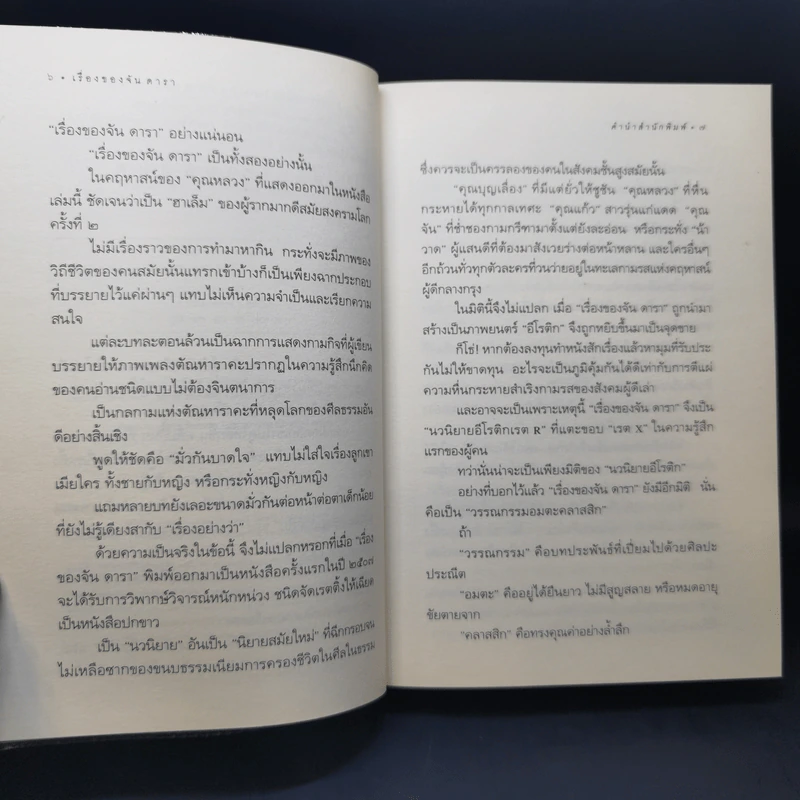 ๖ • เรื่องของจัน ดารา
“เรื่องของจัน ดารา” อย่างแน่นอน
“เรื่องของจัน ดารา” เป็นทั้งสองอย่างนั้น
ในคฤหาสน์ของ “คุณหลวง” ที่แสดงออกมาในหนังสือ
เล่มนี้ ชัดเจนว่าเป็น “ฮาเล็ม” ของผู้รากมากดีสมัยสงครามโลก
ครั้งที่ ๒
ไม่มีเรื่องราวของการทำมาหากิน กระทั่งจะมีภาพของ
วิถีชีวิตของคนสมัยนั้นแทรกเข้าบ้างก็เป็นเพียงฉากประกอบ
ที่บรรยายไว้แค่ผ่านๆ แทบไม่เห็นความจำเป็นและเรียกความ
สนใจ
แต่ละบทละตอนล้วนเป็นฉากการแสดงกามกิจที่ผู้เขียน
บรรยายให้ภาพเพลงตัณหาราคะปรากฏในความรู้สึกนึกคิด
ของคนอ่านชนิดแบบไม่ต้องจินตนาการ
เป็นกลกามแห่งตัณหาราคะที่หลุดโลกของศีลธรรมอัน
ดีอย่างสิ้นเชิง
พูดให้ชัดคือ “มั่วกันบาดใจ” แทบไม่ใส่ใจเรื่องลูกเขา
เมียใคร ทั้งชายกับหญิง หรือกระทั่งหญิงกับหญิง
แถมหลายบทยังเลอะขนาดมั่วกันต่อหน้าต่อตาเด็กน้อย
ที่ยังไม่รู้เดียงสากับ “เรื่องอย่างว่า”
ด้วยความเป็นจริงในข้อนี้ จึงไม่แปลกหรอกที่เมื่อ “เรื่อง
ของจัน ดารา” พิมพ์ออกมาเป็นหนังสือครั้งแรกในปี ๒๕๐๗
จะได้รับการวิพากษ์วิจารณ์หนักหน่วง ชนิดจัดเรตติ้งให้เฉียด
เป็นหนังสือปกขาว
เป็น “นวนิยาย” อันเป็น “นิยายสมัยใหม่” ที่ฉีกกรอบจน
ไม่เหลือซากของขนบธรรมเนียมการครองชีวิตในศีลในธรรม
คำนำสำนักพิมพ์ • ๗
ซึ่งควรจะเป็นครรลองของคนในสังคมชั้นสูงสมัยนั้น
“คุณบุญเลื่อง” ที่มีแต่ยั่วให้ชูชัน “คุณหลวง” ที่หื่น
กระหายได้ทุกกาลเทศะ “คุณแก้ว” สาวรุ่นแก่แดด “คุณ
จัน” ที่ช่ำชองกามกรีฑามาตั้งแต่ยังละอ่อน หรือกระทั่ง “น้า
วาด” ผู้แสนดีที่ต้องมาสังเวยร่างต่อหน้าหลาน และใครอื่นๆ
อีกถ้วนทั่วทุกตัวละครที่วนว่ายอยู่ในทะเลกามรสแห่งคฤหาสน์
ผู้ดีกลางกรุง
ในมิตินี้จึงไม่แปลก เมื่อ “เรื่องของจัน ดารา” ถูกนำมา
สร้างเป็นภาพยนตร์ “อีโรติก” จึงถูกหยิบขึ้นมาเป็นจุดขาย
ก็ใช่! หากต้องลงทุนทำหนังสักเรื่องแล้วหามุมที่รับประ
กันไม่ให้ขาดทุน อะไรจะเป็นภูมิคุ้มกันได้ดีเท่ากับการตีแผ่
ความหื่นกระหายสำเริงกามรสของสังคมผู้ดีเล่า
และอาจจะเป็นเพราะเหตุนี้ “เรื่องของจัน ดารา” จึงเป็น
“นวนิยายอีโรติกเรต R” ที่แตะขอบ “เรต X” ในความรู้สึก
แรกของผู้คน
ทว่านั่นน่าจะเป็นเพียงมิติของ “นวนิยายอีโรติก”
อย่างที่บอกไว้แล้ว “เรื่องของจัน ดารา” ยังมีอีกมิติ นั่น
คือเป็น “วรรณกรรมอมตะคลาสสิก”
ถ้า
“วรรณกรรม” คือบทประพันธ์ที่เปี่ยมไปด้วยศิลปะ
ประณีต
“อมตะ” คืออยู่ได้ยืนยาว ไม่มีสูญสลาย หรือหมดอายุ
ขัยตายจาก
“คลาสสิก” คือทรงคุณค่าอย่างล้ำลึก